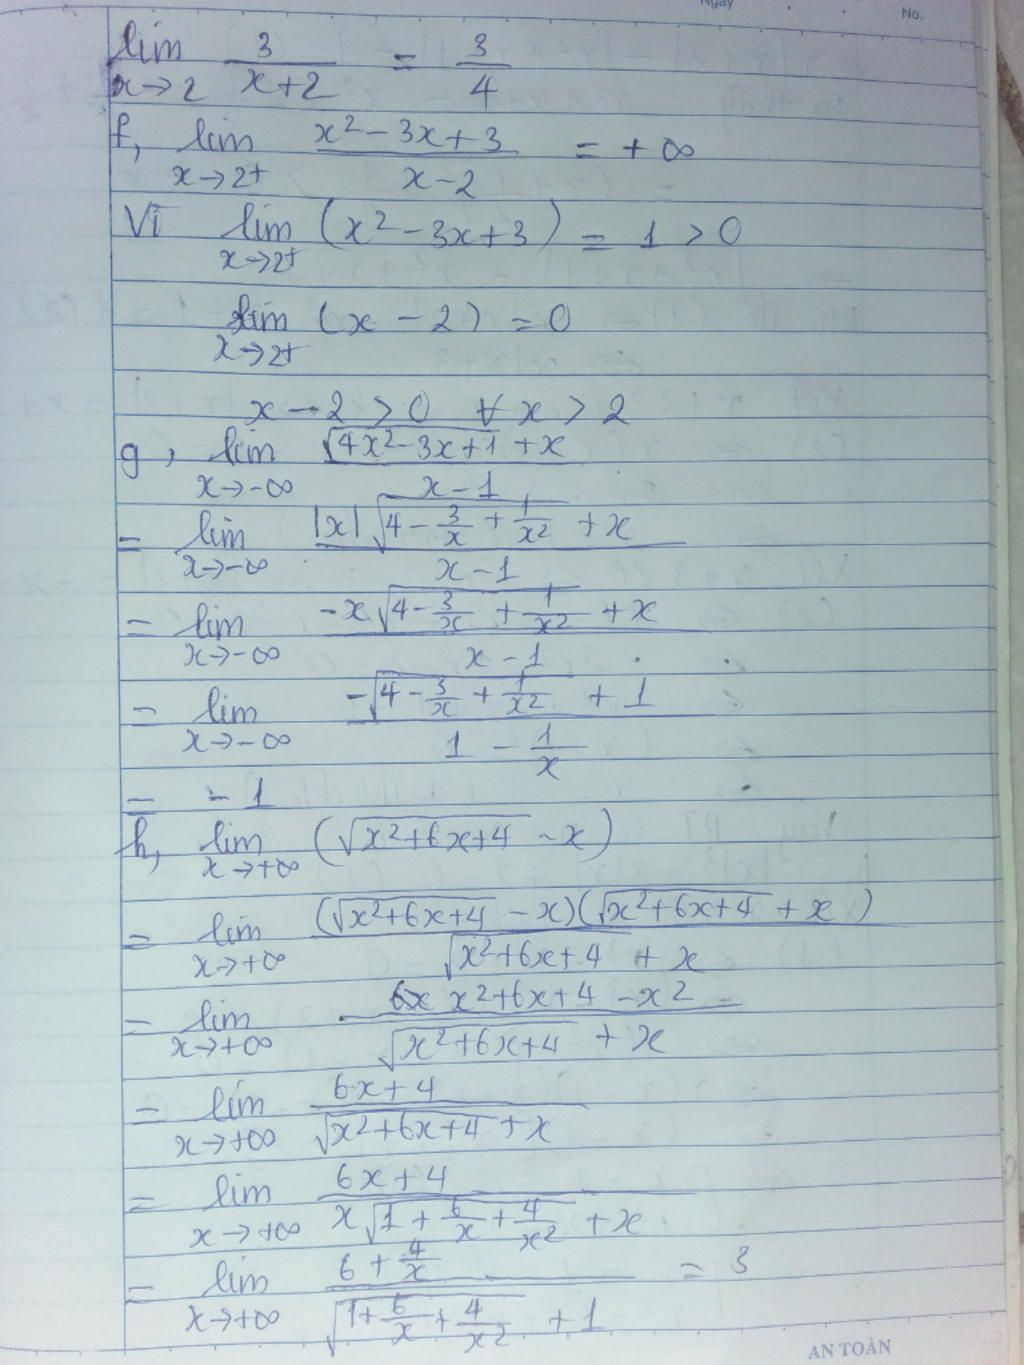 Ngày No.
lim x→2 3/(x+2) = 3/4
f, lim x→2+ (x² - 3x + 3)/(x - 2) = +∞
Vì lim x→2+ (x² - 3x + 3) = 1 > 0
lim x→2+ (x - 2) = 0
x - 2 > 0 ∀ x > 2
g, lim x→-∞ (√(4x² - 3x + 1) + x)/(x - 1)
= lim x→-∞ (|x|√(4 - 3/x + 1/x²) + x)/(x - 1)
= lim x→-∞ (-x√(4 - 3/x + 1/x²) + x)/(x - 1)
= lim x→-∞ (-√(4 - 3/x + 1/x²) + 1)/(1 - 1/x)
= -1
h, lim x→+∞ (√(x² + 6x + 4) - x)
= lim x→+∞ (√(x² + 6x + 4) - x)(√(x² + 6x + 4) + x)/(√(x² + 6x + 4) + x)
= lim x→+∞ (x² + 6x + 4 - x²)/(√(x² + 6x + 4) + x)
= lim x→+∞ (6x + 4)/(√(x² + 6x + 4) + x)
= lim x→+∞ (6x + 4)/(x√(1 + 6/x + 4/x²) + x)
= lim x→+∞ (6 + 4/x)/(√(1 + 6/x + 4/x²) + 1) = 3
AN TOÀN